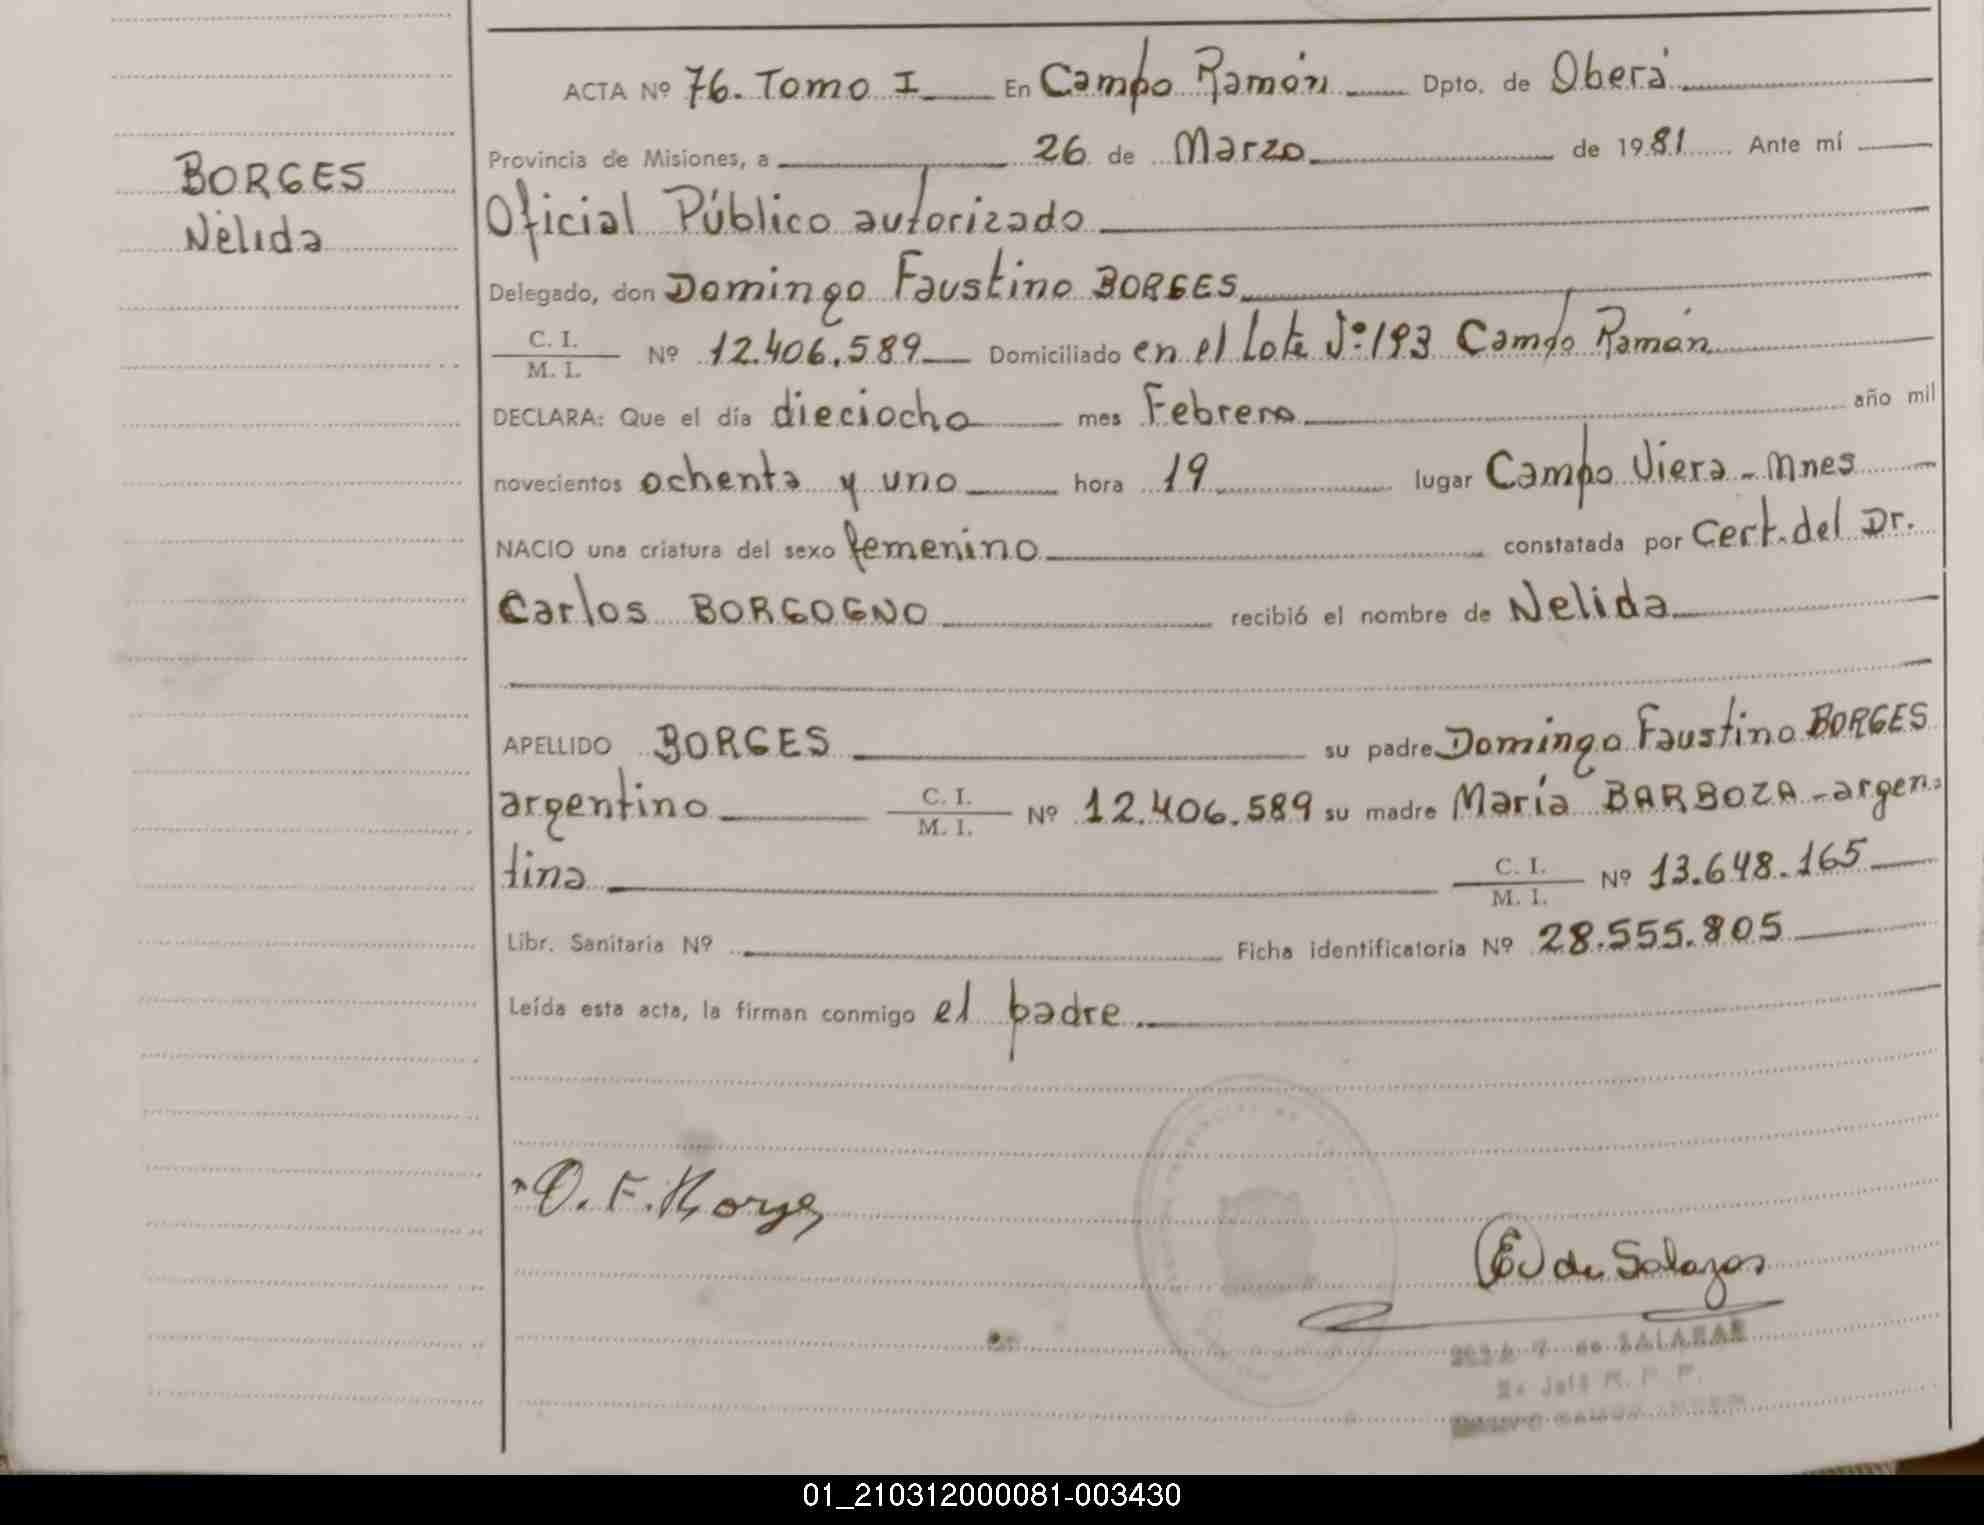 ACTA Nº 76. Tomo I En Campo Ramón Dpto. de Oberá
Provincia de Misiones, a 26 de Marzo de 1981 Ante mí
BORGES
Nélida
Oficial Público autorizado
Delegado, don Domingo Faustino BORGES
C. I.
M. I.
Nº 12.406.589 Domiciliado en el Lote Nº 193 Campo Ramón
DECLARA: Que el día dieciocho mes Febrero año mil
novecientos ochenta y uno hora 19 lugar Campo Viera - Mnes
NACIO una criatura del sexo femenino constatada por Cert. del Dr.
Carlos BORGOGNO recibió el nombre de Nelida
APELLIDO BORGES su padre Domingo Faustino BORGES
argentino C. I. M. I. Nº 12.406.589 su madre María BARBOZA - argen-
tina C. I. M. I. Nº 13.648.165
Libr. Sanitaria Nº Ficha identificatoria Nº 28.555.805
Leída esta acta, la firman conmigo el padre
D. F. Borges
de Salazar
de SALAZAR
01_210312000081-003430